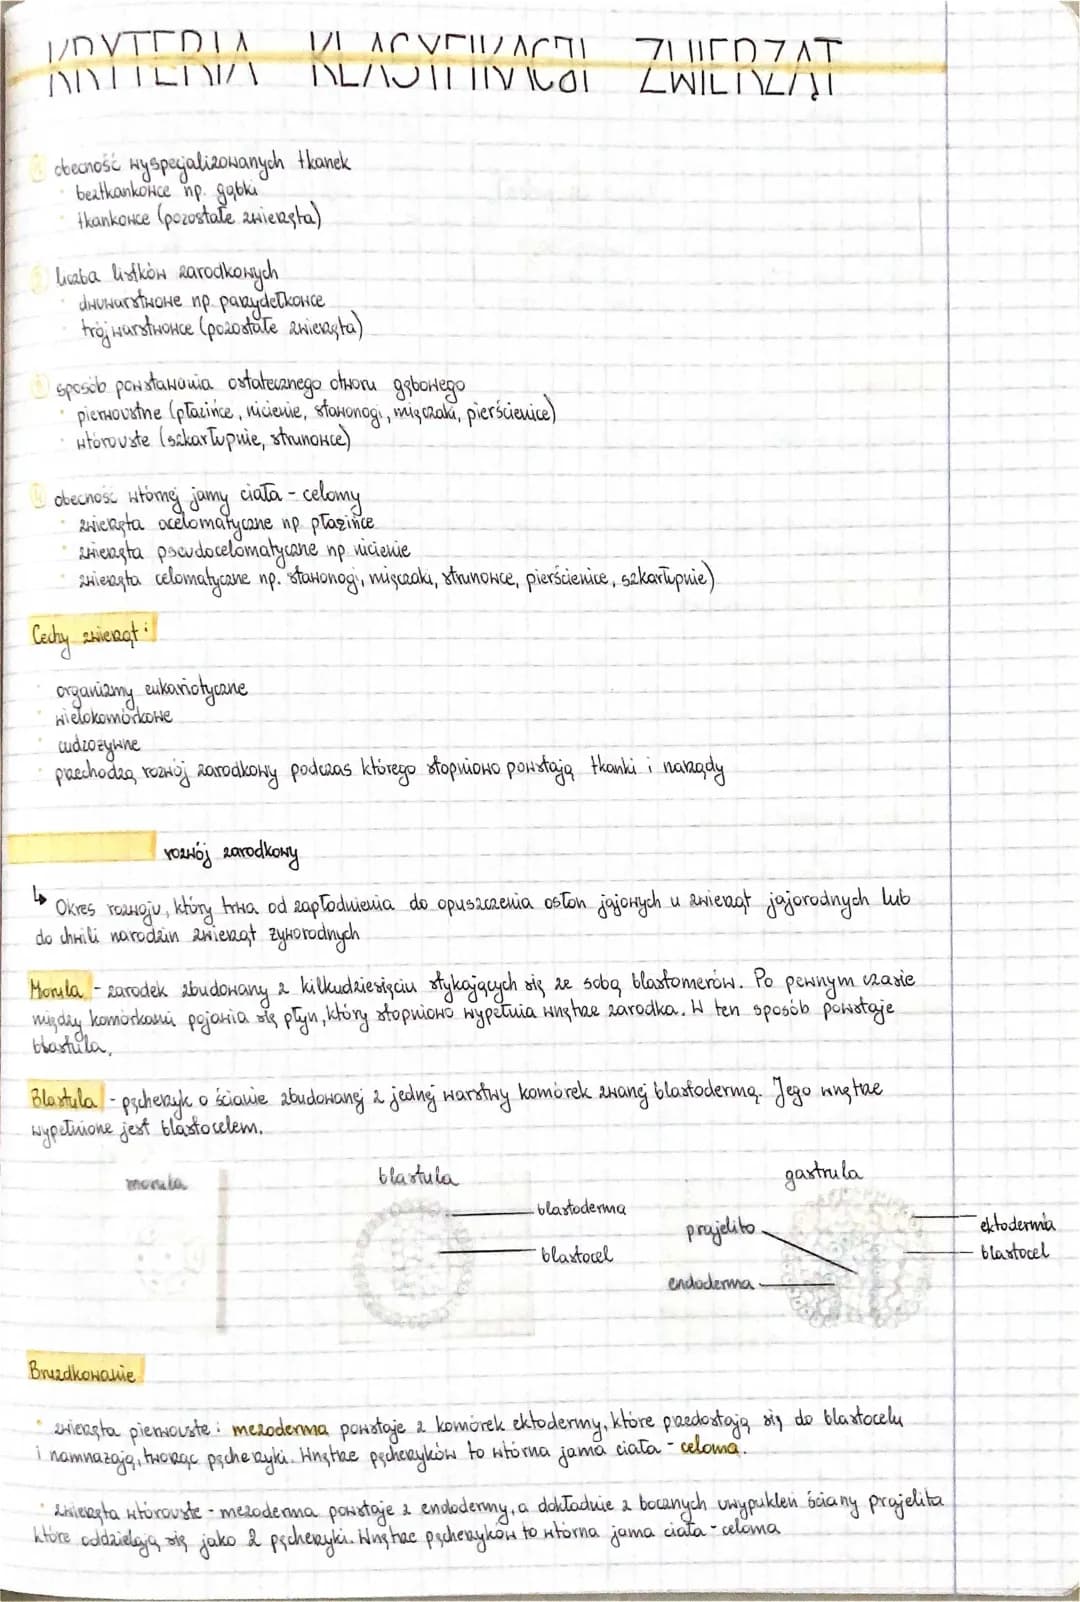 KRYTERIA KLASYFIKACJI ZWIERZĄT
1 obecność wyspecjalizowanych tkanek
• beztkankowce np. gąbki
• tkankowce (pozostałe zwierzęta)
2 liczba listków zarodkowych
• dwuwarstwowe np. parzydełkowce
• trójwarstwowce (pozostałe zwierzęta)
3 sposób powstawania ostatecznego otworu gębowego
• pierwoustne (płazińce, nicienie, stawonogi, mięczaki, pierścienice)
• wtórouste (szkarłupnie, strunowce)
4 obecność wtórnej jamy ciała - celomy
• zwierzęta acelomatyczne np. płazińce
• zwierzęta pseudocelomatyczne np. nicienie
• zwierzęta celomatyczne np. stawonogi, mięczaki, strunowce, pierścienice, szkarłupnie)
Cechy zwierząt:
• organizmy eukariotyczne
• wielokomórkowe
• cudzożywne
• przechodzą rozwój zarodkowy podczas którego stopniowo powstają tkanki i narządy
rozwój zarodkowy
↳ Okres rozwoju, który trwa od zapłodnienia do opuszczenia osłon jajowych u zwierząt jajorodnych lub
do chwili narodzin zwierząt żyworodnych
Morula - zarodek zbudowany z kilkudziesięciu stykających się ze sobą blastomerów. Po pewnym czasie
między komórkami pojawia się płyn, który stopniowo wypełnia wnętrze zarodka. W ten sposób powstaje
blastula.
Blastula - pęcherzyk o ścianie zbudowanej z jednej warstwy komórek zwanej blastodermą. Jego wnętrze
wypełnione jest blastocelem.
morula
blastula
blastoderma
blastocel
gastrula
prajelito
endoderma
ektoderma
blastocel
Bruzdkowanie
• zwierzęta pierwouste: mezoderma powstaje z komórek ektodermy, które przedostają się do blastocelu
i namnażają, tworząc pęcherzyki. Wnętrze pęcherzyków to wtórna jama ciała - celoma.
• zwierzęta wtórouste - mezoderma powstaje z endodermy, a dokładnie z bocznych uwypukleń ściany prajelita
które oddzielają się jako 2 pęcherzyki. Wnętrze pęcherzyków to wtórna jama ciała - celoma